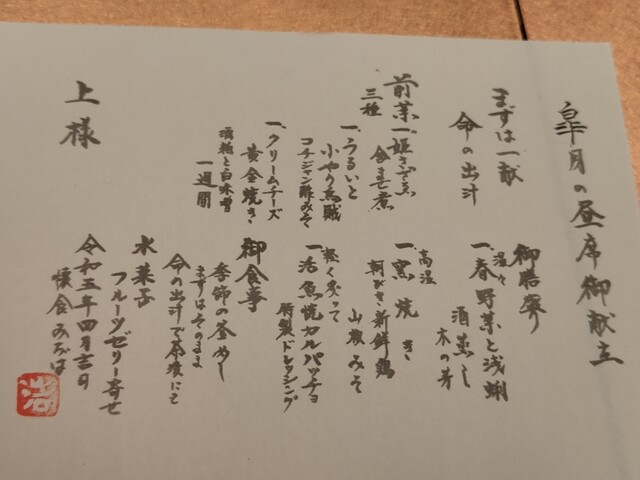 皐月の昼席御献立
まずは一献
命の出汁
前菜
三種
一、姫さざえ
含ませ煮
一、うるいと
小やり烏賊
コチジャン酢みそ
一、クリームチーズ
黄金焼き
酒粕と白味噌
一週間
御膳寧り
温々
一、春野菜と浅蜊
酒蒸し
木の芽
高温
一、窯焼き
朝びき新鮮鶏
山椒みそ
軽く炙って
一、活魚焼カルパッチョ
特製ドレッシング
御食事
季節の釜めし
まずはそのまま
命の出汁で茶漬にて
水菓子
フルーツゼリー寄せ
令和五年四月吉日
懐食みちば
上様